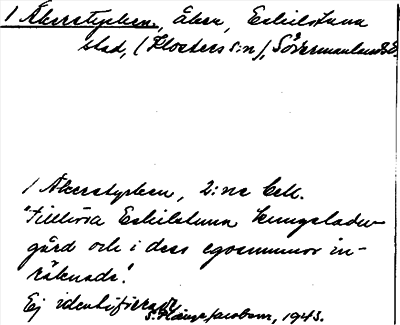 1 Åkerstycken, åker, Eskilstuna
stad, (Klosters s:n), Södermanland
1 Åkerstycken, 2:ne bek.
"Tillhöra Eskilstuna kungsladu-
gård och i dess egomunor in-
räknade".
Ej identifierade
1943.